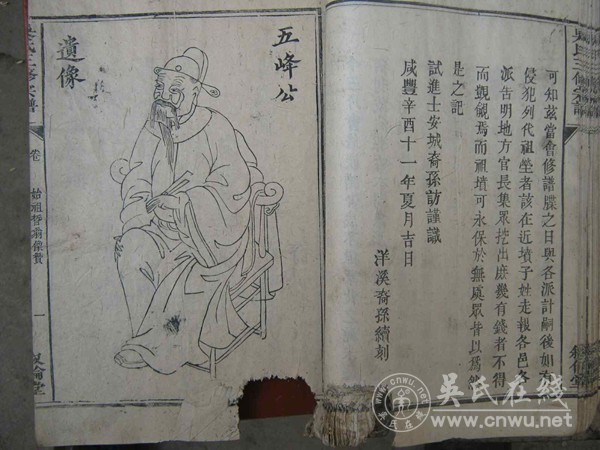 吳氏三修宗譜
可知茲當會修譜牒之日與各派計嗣後如有
侵犯列代祖塋者該在近墳子姓走報各邑各
派告明地方官長集眾挖出庶幾有錢者不得
而覬覦焉而祖墳可永保於無虞眾皆以為然
是之記
試進士安城裔孫訪謹識
咸豐辛酉十一年夏月吉日
洋溪裔孫續刻
五峰公
遺像
卷
始祖
像贊
一
倫堂
吳氏在线
www.cnwu.net